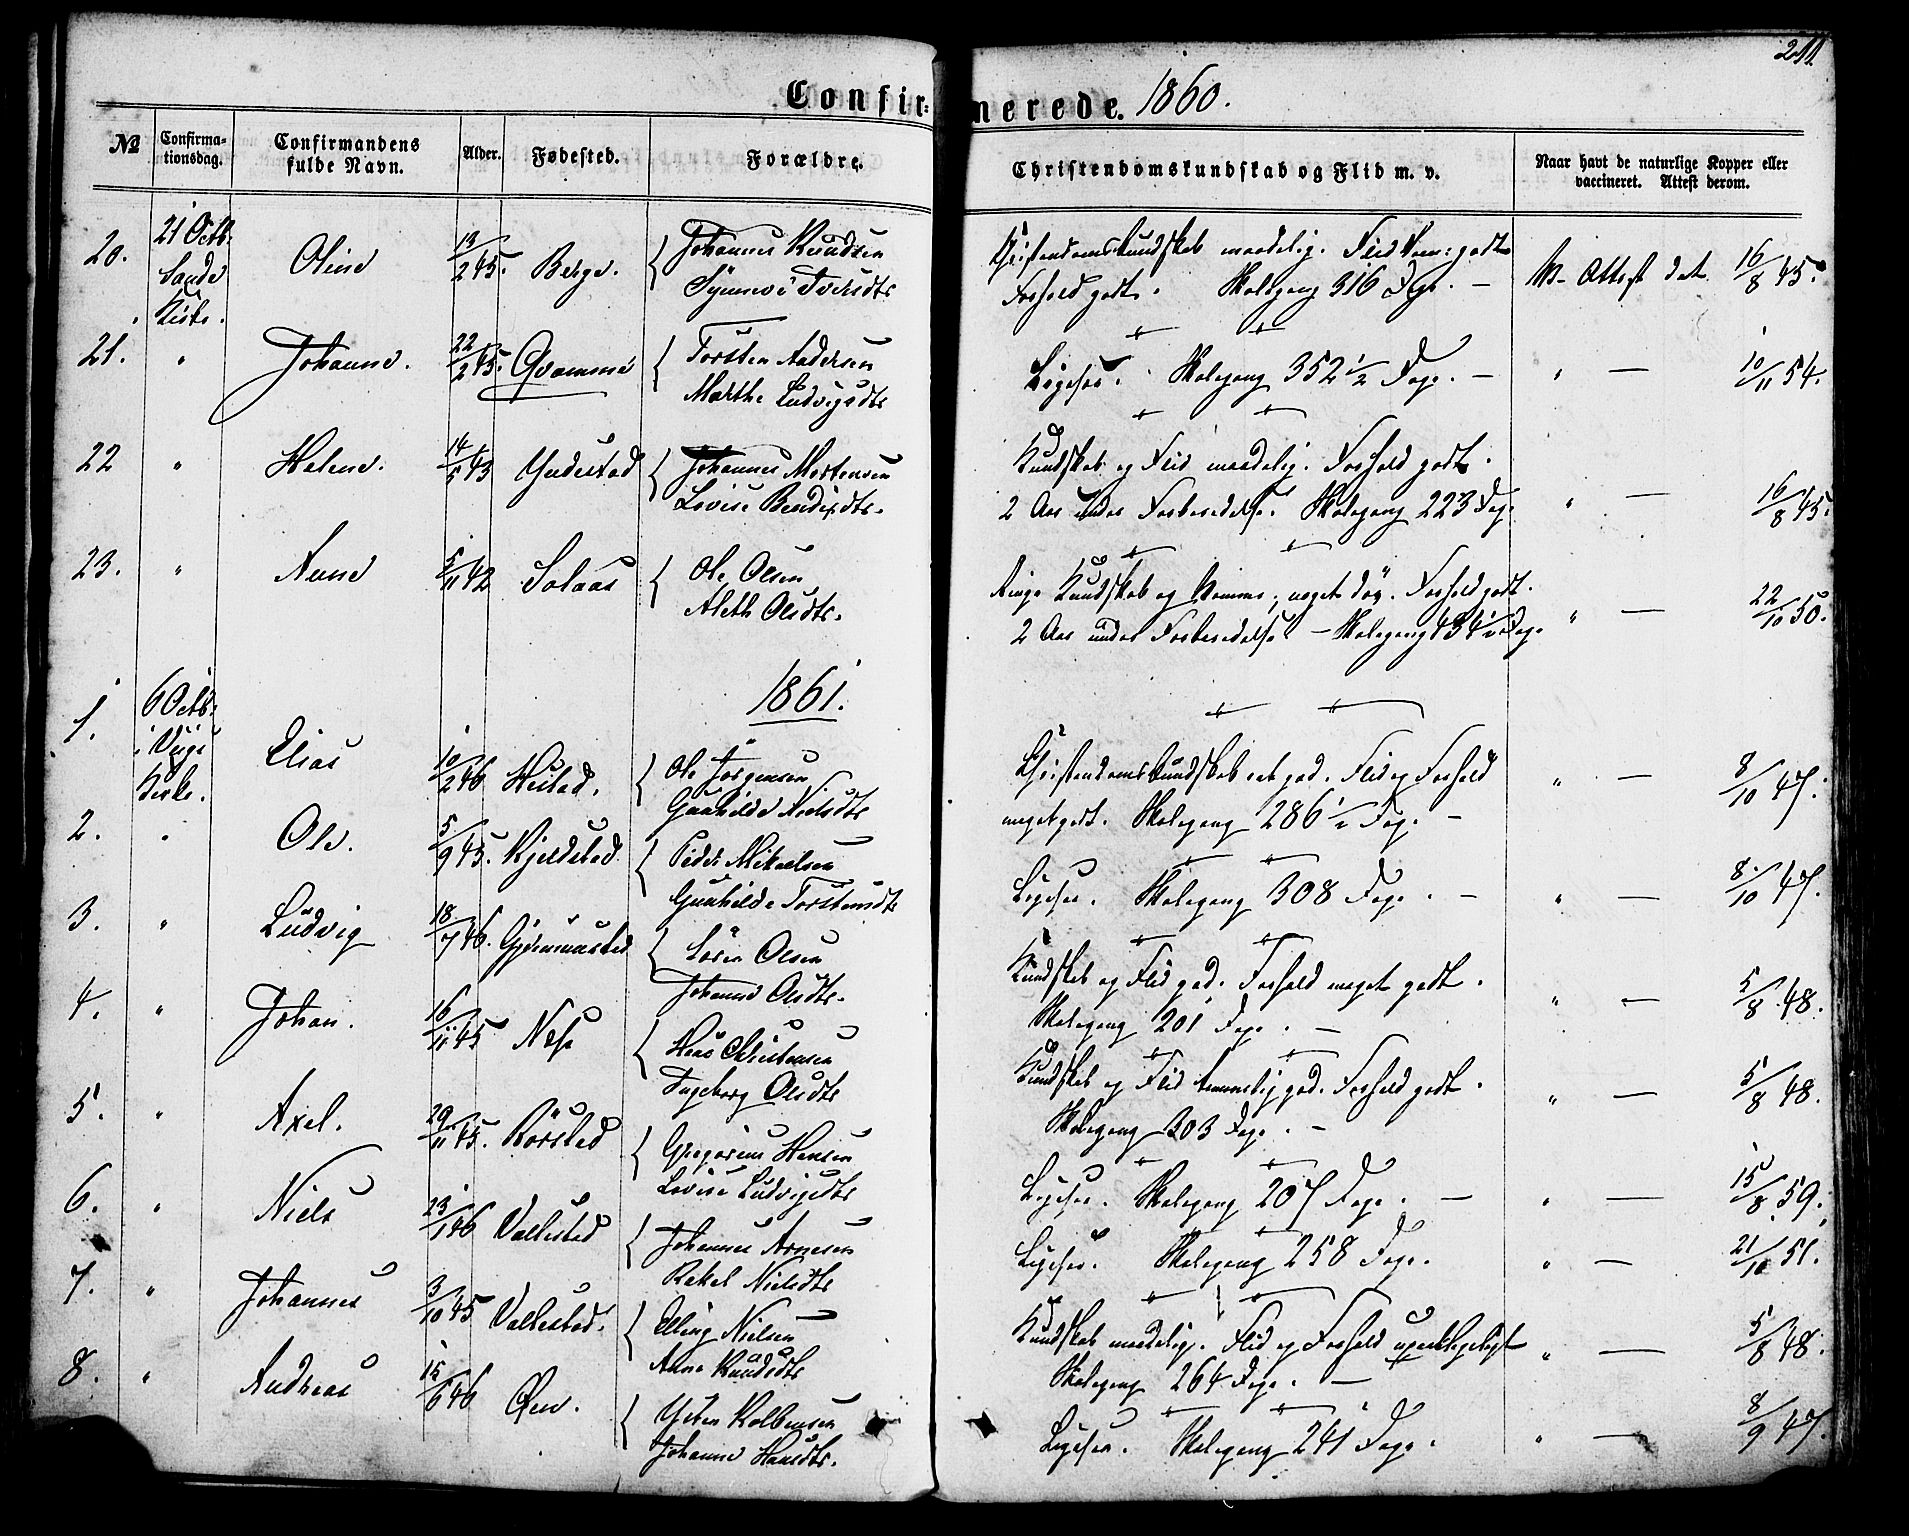 211
Confirmerede. 1860.
№ Confirmationsdag. Confirmandens fulde Navn. Alder. Fødested. Forældre. Christendomskundskab og Flid m. v. Naar havt de naturlige Kopper eller vaccineret. Attest derom.
20. 21 Octb. Sande Kirke. Oline 13/2 45. Berge. Johannes Knudsen Christendomskundskab maadelig. Flid godt
Forhold godt. Skolegang 316 Dage. — Attest dat. 16/8 45.
21. " Johanne. 22/2 45. Qvamme Torsten Andersen
Marthe Ludvigsdtr Ligesaa. Skolegang 352 1/2 Dage. — " — 10/11 54.
22 " Helene. 14/5 43 Yndestad Johannes Mortensen Kundskab og Flid maadelig. Forhold godt.
Lovise Bendixdtr. 2 Aar under Forberedelse. Skolegang 223 Dage " — 16/8 45.
23. " Anne 5/11 42 Solaas Ole Olsen Ringe Kundskab og Nemme, noget døv. Forhold godt.
Aleth Olsdtr. 2 Aar under Forberedelse — Skolegang 434 1/2 Dage " — 22/10 50.
1861.
1. 6 Octb. i Kirke. Elias 10/2 46 Hestad. Ole Jørgensen Christendomskundskab ret god. Flid og Forhold
Gunhilde Nielsdtr meget godt. Skolegang 286 1/2 Dage — " — 8/10 47.
2. " Ole. 5/9 45. Kjeldstad. Peder Mikaelsen
Gunhilde Torstensdtr Ligesaa. Skolegang 308 Dage. — " — 8/10 47.
3. " Ludvig 18/7 46. Gjemmestad Søren Olsen Kundskab og Flid god. Forhold meget godt.
Johanne Olsdtr. Skolegang 201 Dage. — " — 5/8 48.
4. " Johan. 16/11 45 Næss Hans Christensen Kundskab og Flid temmelig god. Forhold godt.
Ingeborg Olsdtr Skolegang 303 Dage. — " — 5/8 48.
5. " Axel. 29/11 45. Rørstad Gregorius Hansen
Lovise Ludvigsdtr Ligesaa. Skolegang 207 Dage. — " — 15/8 59.
6. " Niels 23/1 46 Vallestad Johannes Arnesen
Rakel Nielsdtr Ligesaa. Skolegang 258 Dage. " — 21/10 51.
7. " Johannes 3/10 45 Vallestad. Elling Nielsen Kundskab maadelig. Flid og Forhold upaaklageligt
Anne Knudsdtr Skolegang 264 Dage. — " — 5/8 48.
8. " Andreas 15/6 46 Øen. Kolbensen
Johanne Hansdtr. Ligesaa. Skolegang 241 Dage. " — 8/9 47.